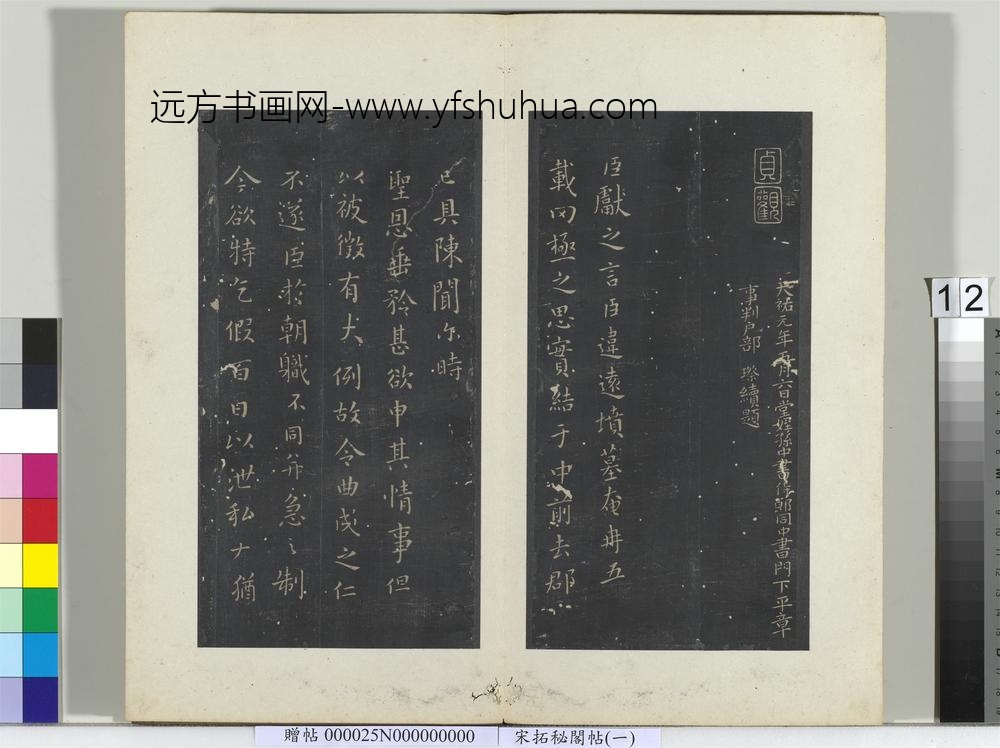 远方书画网-www.yfshuhua.com
貞觀
天祐元年五月六日堂姪孫中書侍郎同中書門下平章
事判戶部 璨續題
臣獻之言臣違遠墳墓奄冉五
載罔極之思實結于中前去郡
已具陳聞尓時
聖恩垂矜甚欲申其情事但
以被徵有大例故令曲成之仁
不遂臣於朝職不同并急之制
今欲特乞假百日以泄私 猶
12
贈帖 000025N000000000 宋拓秘閣帖(一)